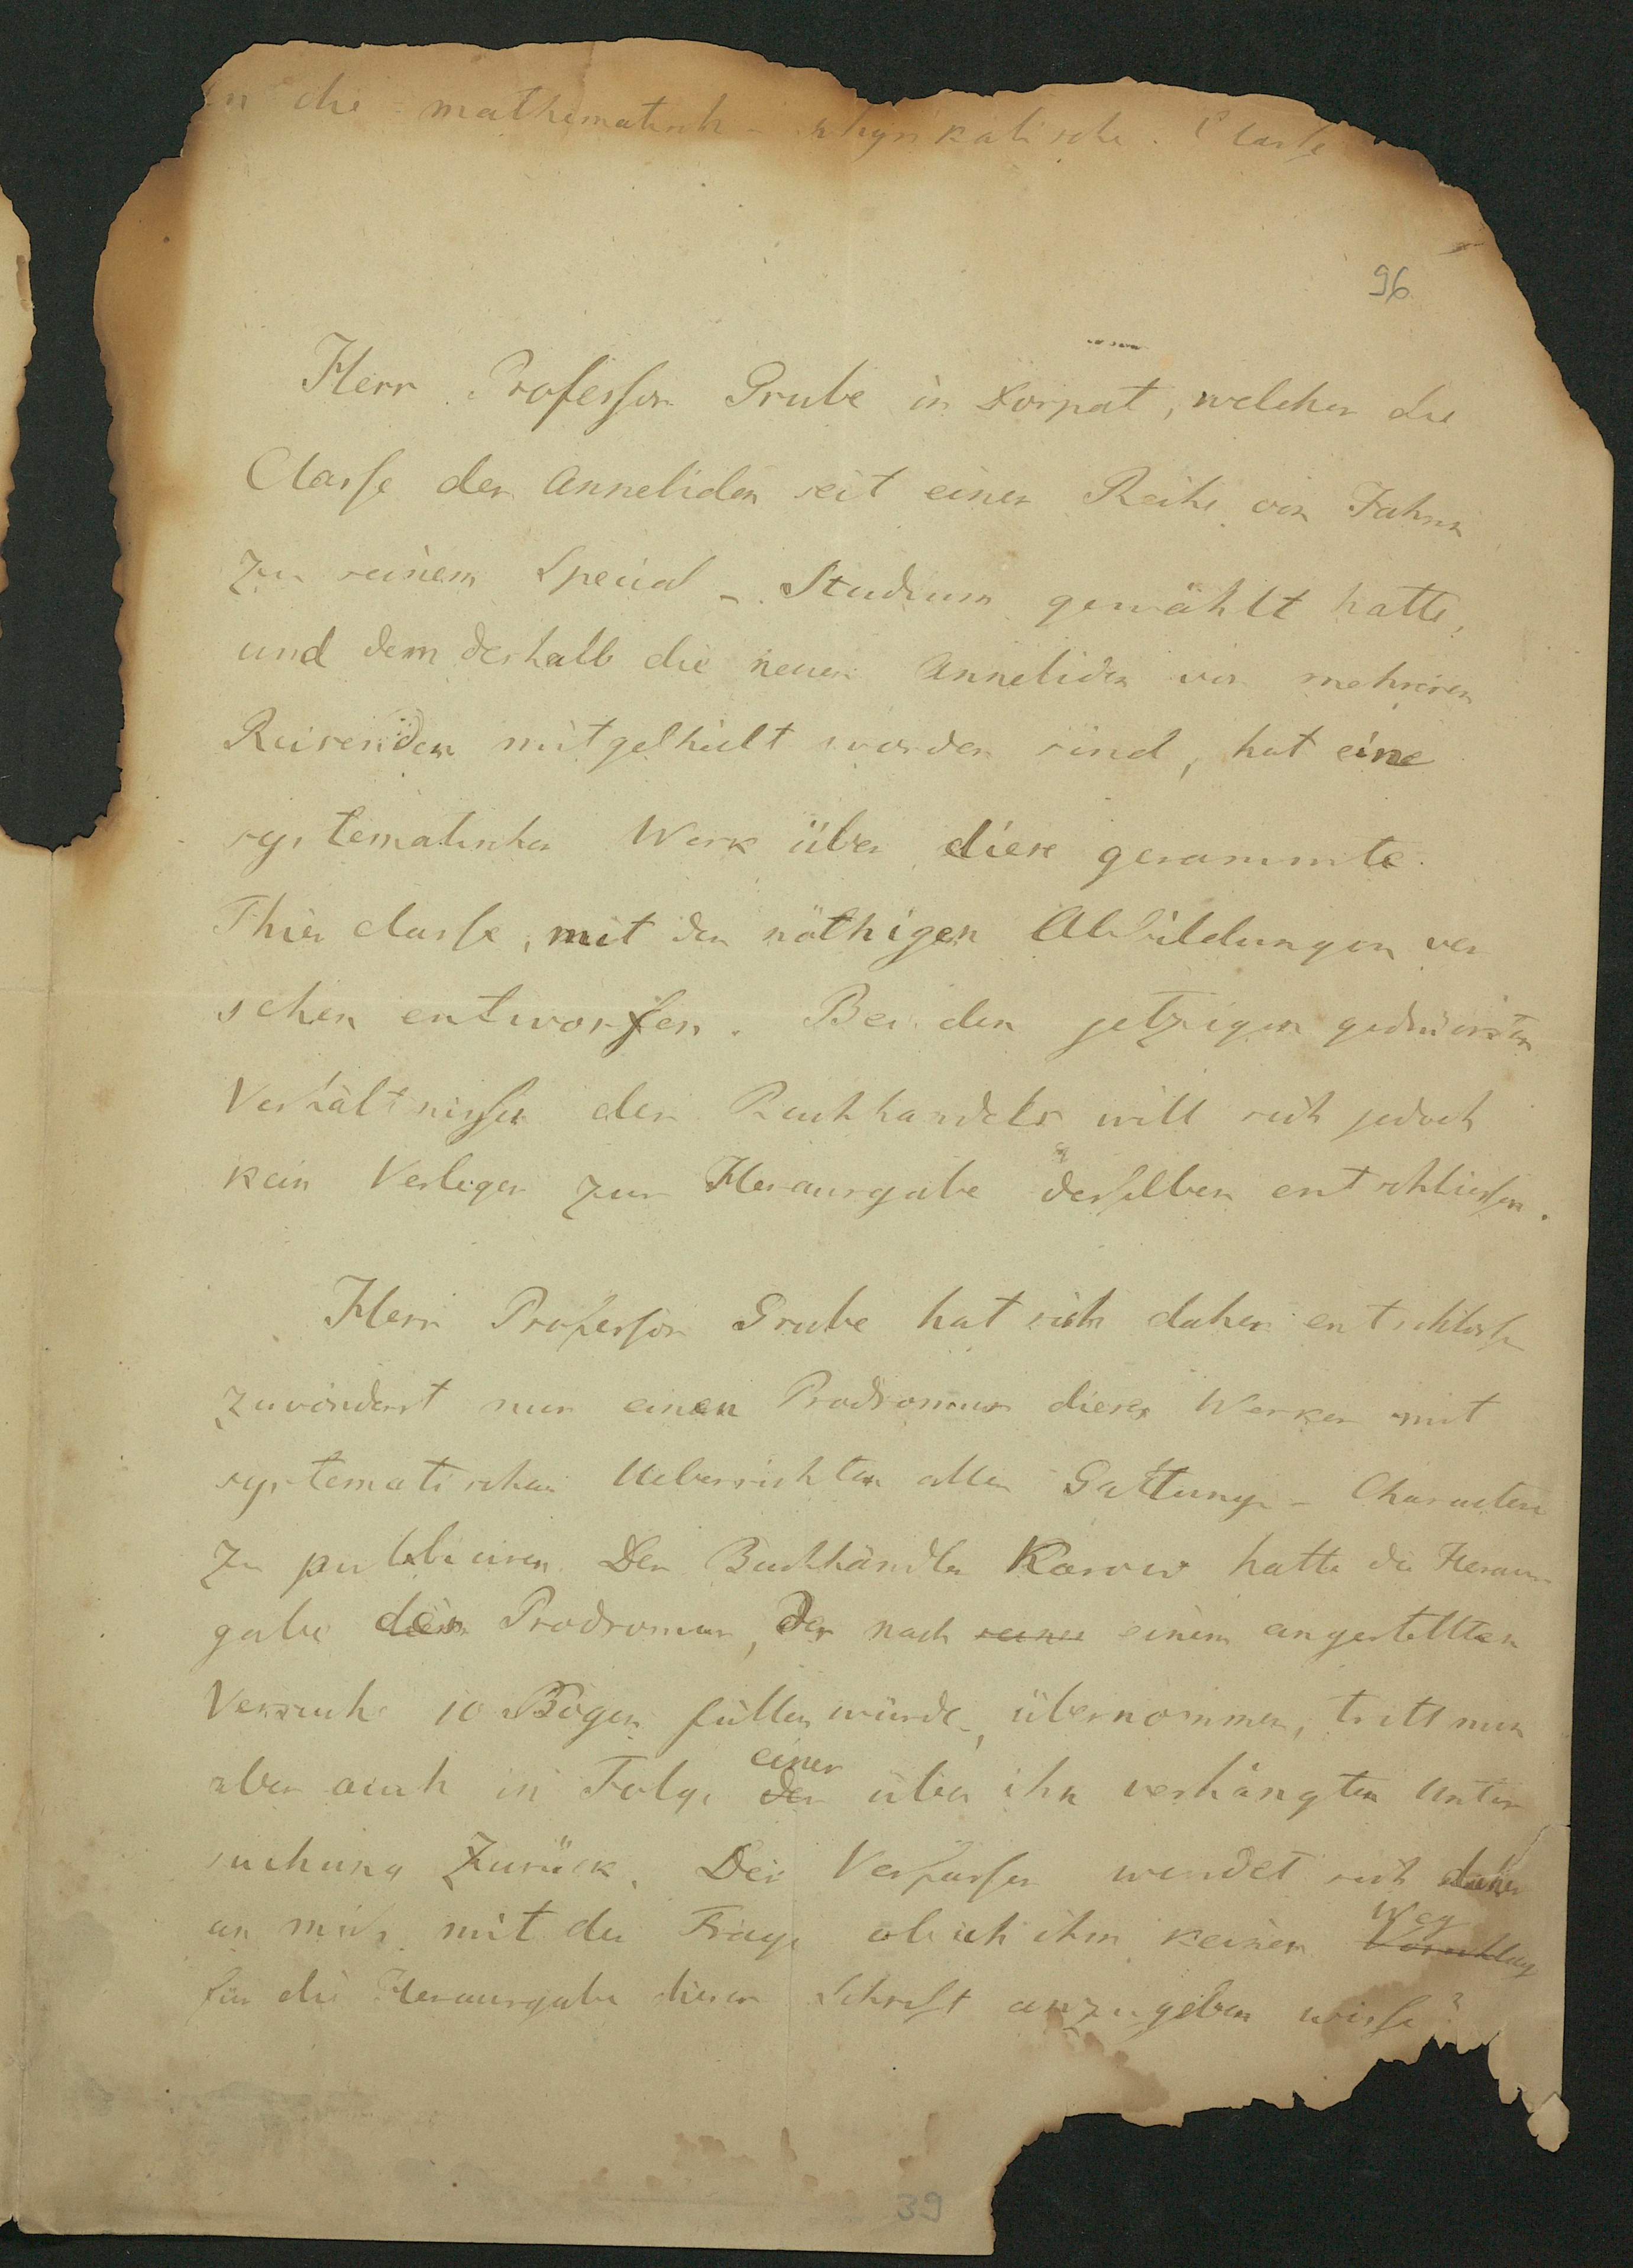 An die mathematisch-physikalische Classe
96
Herr Professor Grube in Dorpat, welcher die
Classe der Anneliden seit einer Reihe von Jahren
zu seinem Special-Studium gewählt hatte,
und dem deshalb die neuen Anneliden von mehreren
Reisenden mitgetheilt worden sind, hat eine
systematisches Werk über diese gesammte
Thierclasse, mit den nöthigen Abbildungen ver
sehen entworfen. Bei den jetzigen gedrückten
Verhältnissen des Buchhandels will sich jedoch
kein Verleger zur Herausgabe desselben entschliessen.
Herr Professor Grube hat sich daher entschlossen
zuvörderst nur einen Prodromus dieses Werkes mit
systematischen Uebersichten aller Gattungs-Charactere
zu publiciren. Der Buchhändler Karow hatte die Heraus
gabe des Prodromus, der nach seine einem angestellten
Versuche 10 Bogen füllen würde, übernommen, tritt nun
einer
aber auch in Folge der über ihn verhängten Unter
suchung zurück. Der Verfasser wendet sich daher
Weg
an mich mit der Frage ob ich ihm keinen Vorschlag
für die Herausgabe dieser Schrift anzugeben wisse?
39